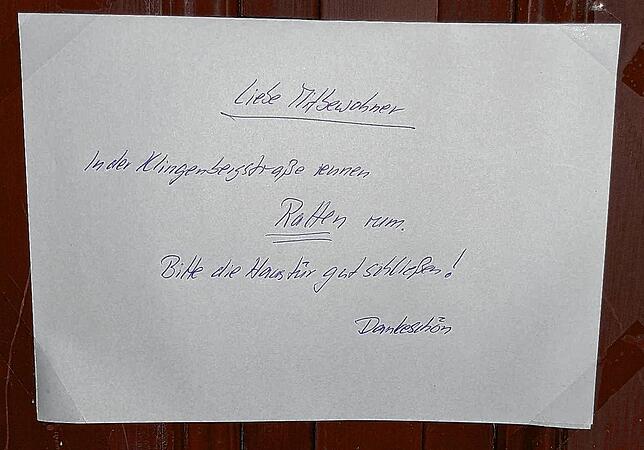 Liebe Mitbewohner
In der Klingenbergstraße rennen
Ratten rum.
Bitte die Haustür gut schließen!
Dankeschön